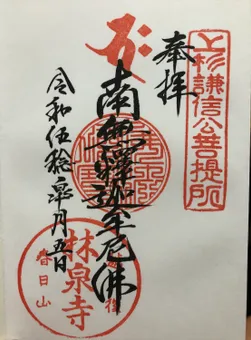 上杉謙信公菩提所
奉拝
南無釋迦牟尼佛
令和伍稔皐月五日
春日山
林泉寺